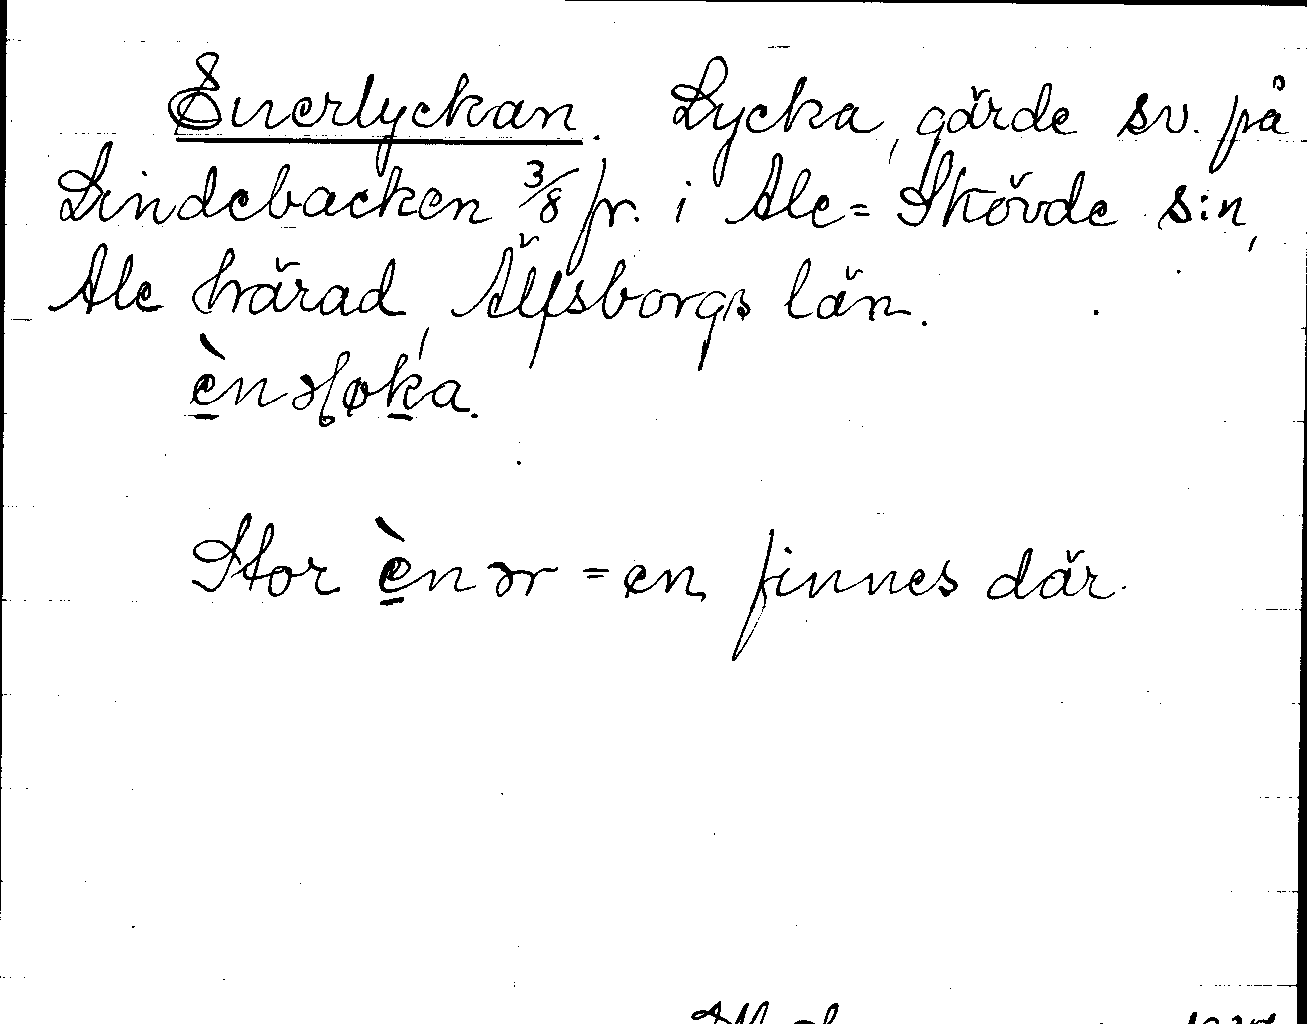 Enerlyckan. Lycka, gärde sv. på
Lindebacken 3/8 fr. i Ale-Skövde s:n,
Ale härad, Älfsborgs län.
Stor ènər = en finnes där.